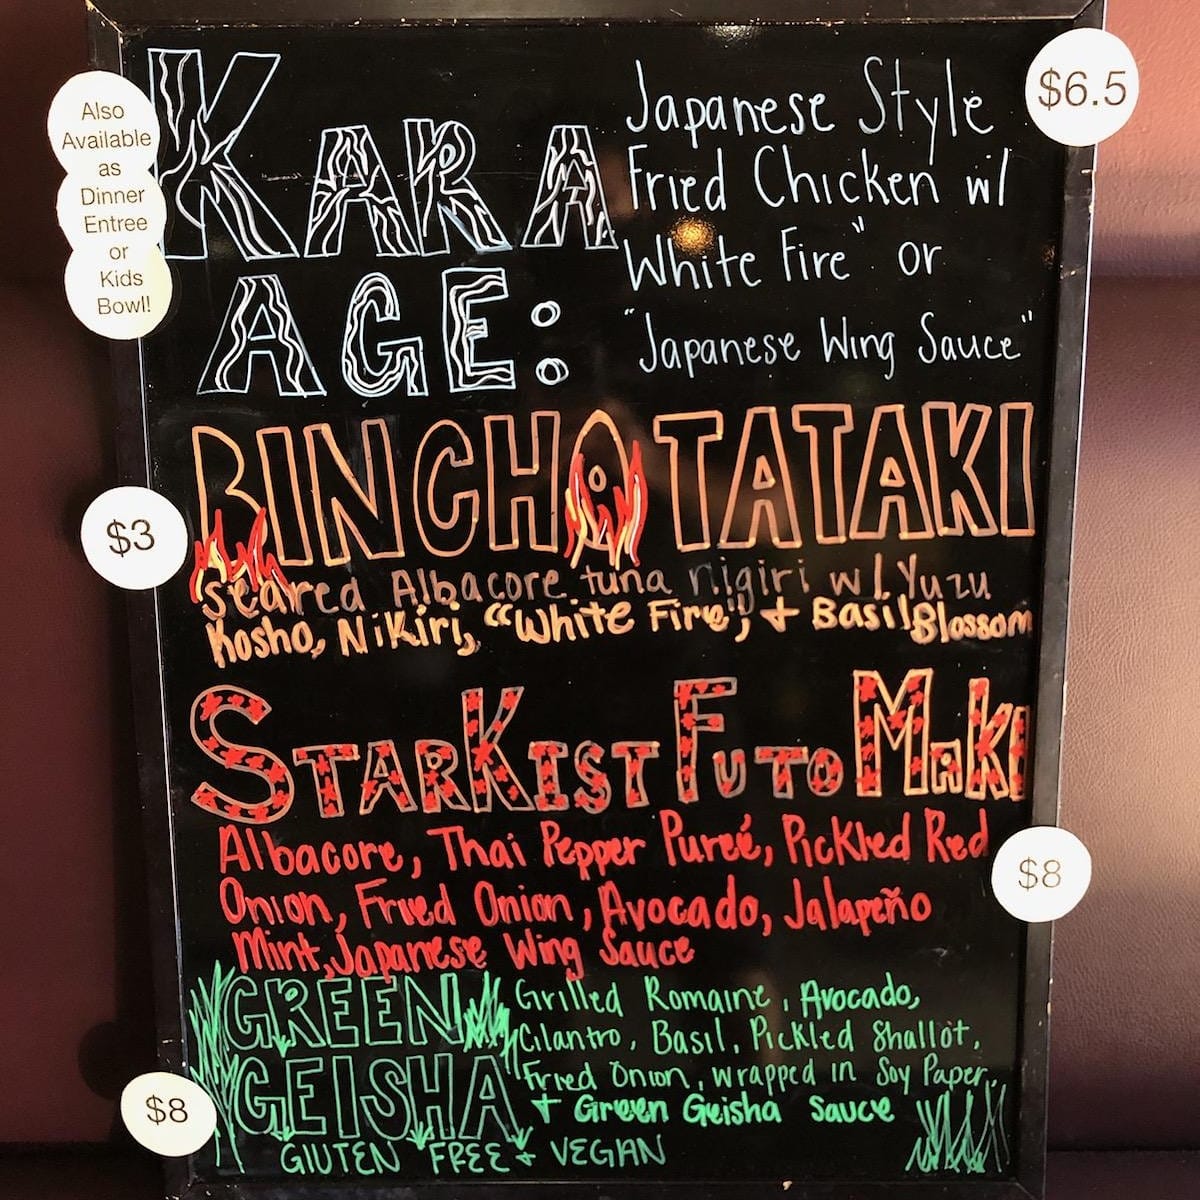 Also
Available
as
Dinner
Entree
or
Kids
Bowl!
$6.5
KARA
AGE:
Japanese Style
Fried Chicken w/
White Fire" or
"Japanese Wing Sauce"
$3
BINCHO TATAKI
Seared Albacore tuna nigiri w/ Yuzu
Kosho, Nikiri, "White Fire", + Basil Blossom
STARKIST FUTO MAKI
$8
Albacore, Thai Pepper Pureé, Pickled Red
Onion, Fried Onion, Avocado, Jalapeño
Mint, Japanese Wing Sauce
$8
GREEN
GEISHA
Grilled Romaine, Avocado,
Cilantro, Basil, Pickled Shallot,
Fried Onion, wrapped in Soy Paper,
+ Green Geisha sauce
GlUTEN FREE + VEGAN